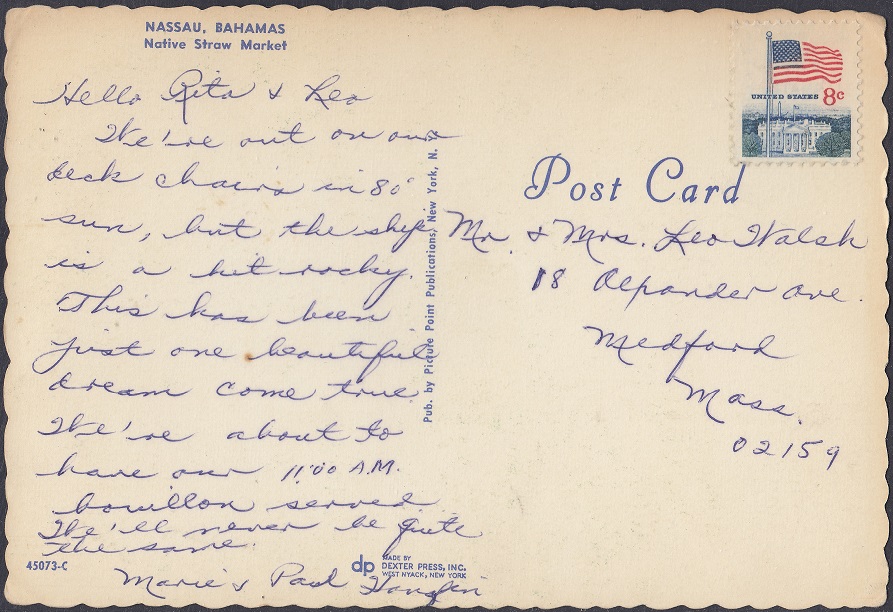 NASSAU, BAHAMAS
Native Straw Market
Hello Rita & Leo
We're out on our
deck chairs in 80°
sun, but the ship
is a bit rocky.
This has been
just one beautiful
dream come true.
We're about to
have our 11:00 A.M.
bouillon served.
We'll never be quite
the same.
Marie & Paul
45073-C
Pub. by Picture Point Publications, New York, N. Y.
dp MADE BY
DEXTER PRESS, INC.
WEST NYACK, NEW YORK
UNITED STATES 8c
Post Card
Mr. & Mrs. Leo Walsh
18 ave.
Medford
Mass.
02159